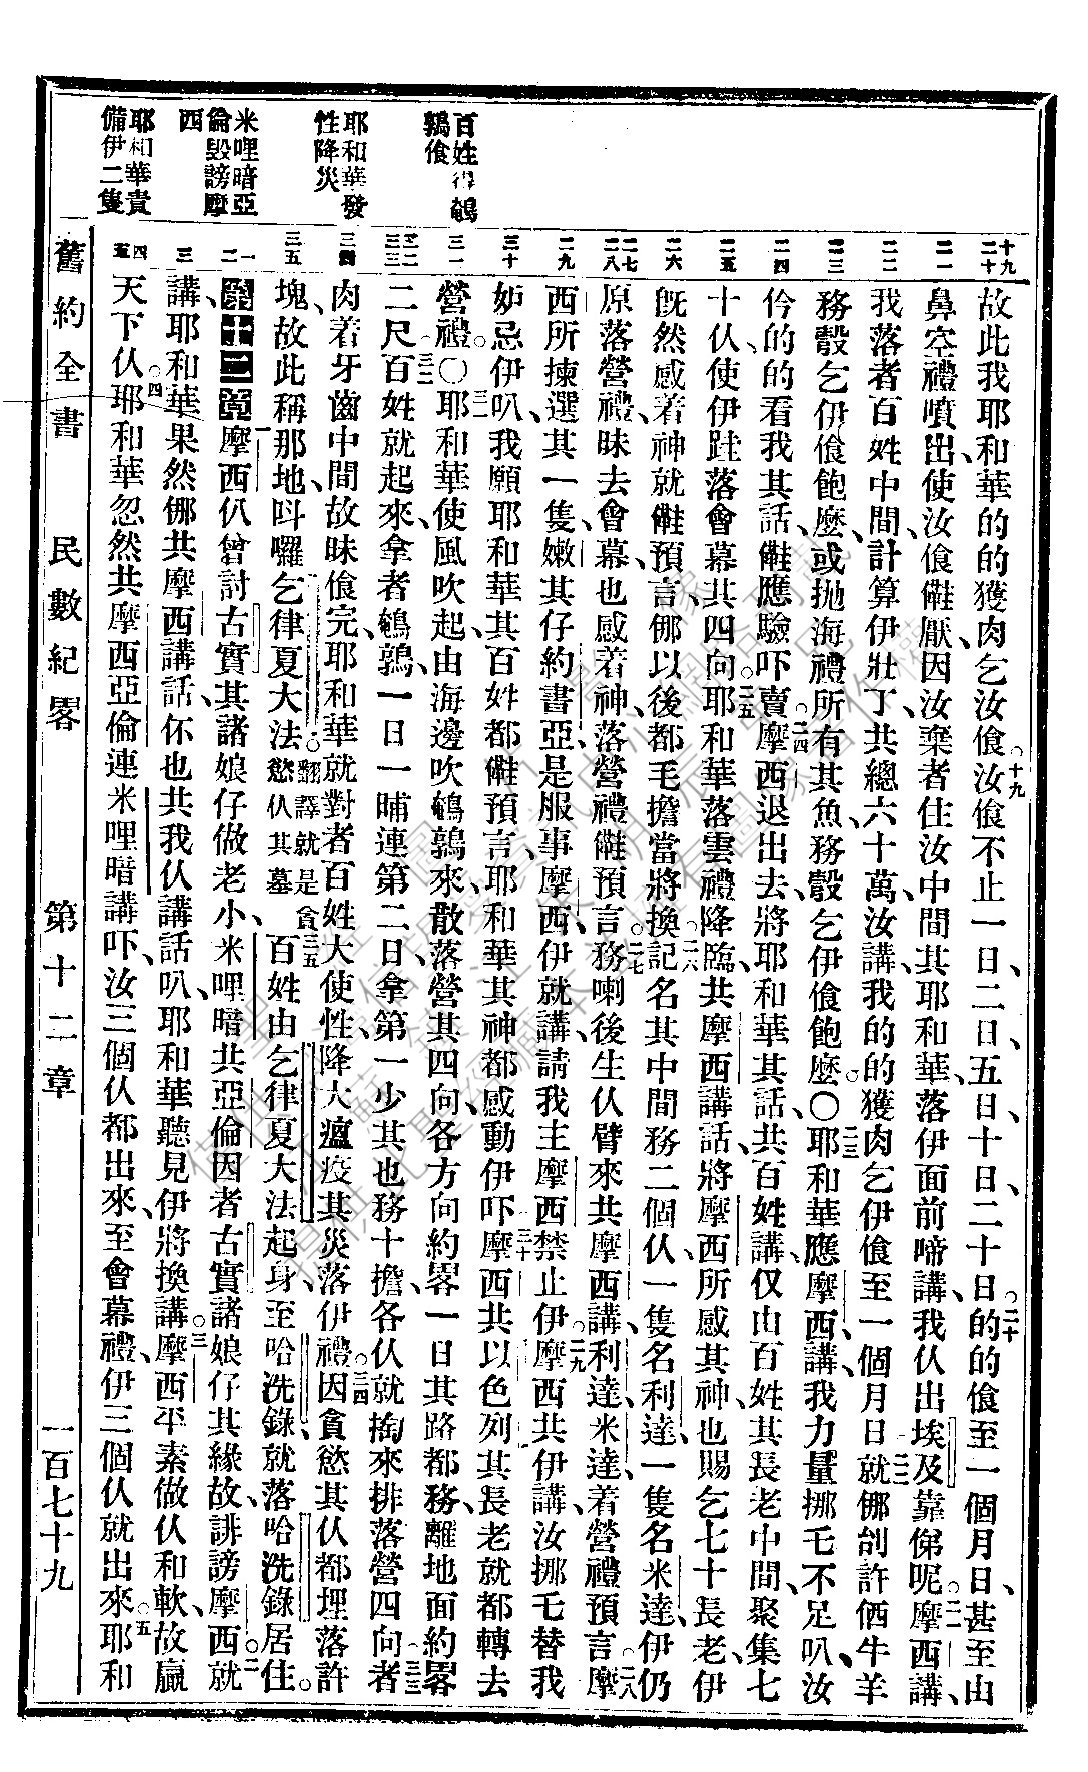 百姓得鵪
鶉食
耶和華發
性降災
米哩暗亞
倫毀謗摩
西
耶和華責
備伊二隻
故此我耶和華的的獲肉乞汝飡○十九汝飡不止一日、二日、五日、十日、二十日○二十的的飡至一個月日、甚至由
鼻空禮噴出、使汝飡厭、因汝棄者住汝中間其耶和華、落伊面前啼講、我仈出埃及靠俤呢○二一摩西講、
我落者百姓中間、計算伊壯丁、共總六十萬、汝講、我的的獲肉乞伊飡至一個月日○二二就㑚刣許価牛羊
務殼乞伊飡飽麽、或抛海禮所有其魚、務殼乞伊飡飽麽○二三耶和華應摩西講、我力量挪乇不足叭、汝
仱的的看我其話、應驗吓賣○二四摩西退出去、將耶和華其話、共百姓講、仅由百姓其長老中間、聚集七
十仈、使伊跬落會幕其四向○二五耶和華落雲禮降臨、共摩西講話、將摩西所感其神、也賜乞七十長老、伊
旣然感着神、就預言、㑚以後都毛擔當將換○二六記名其中間務二個仈、一隻名利達、一隻名米達、伊仍
原落營禮、昧去會幕、也感着神、落營禮預言○二七務喇後生仈臂來共摩西講、利達米達、着營禮預言○二八摩
西所揀選其一隻嫩其仔約書亞、是服事摩西、伊就講、請我主摩西禁止伊○二九摩西共伊講、汝挪乇替我
妒忌伊叭、我願耶和華其百姓都預言、耶和華其神都感動伊吓○三十摩西共以色列其長老、就都轉去
營禮○三一耶和華使風吹起、由海邊吹鵪鶉來、散落營其四向、各方向約畧一日其路都務、離地面約畧
二尺○三二百姓就起來、拿者鵪鶉、一日一晡連第二日拿、第一少其也務十擔、各仈就掏來排落營四向○三三者
肉着牙齒中間、故昧飡完、耶和華就對者百姓大使性、降大瘟疫其災落伊禮○三四因貪慾其仈、都埋落許
塊、故此稱那地呌囉乞律夏大法○翻譯就是貪慾仈其墓○三五百姓由乞律夏大法起身、至哈洗錄、就落哈洗錄居住○
第十二章一摩西仈曾討古實其諸娘仔做老小、米哩暗共亞倫、因者古實諸娘仔其緣故、誹謗摩西○二就
講、耶和華果然㑚共摩西講話、伓也共我仈講話叭、耶和華聽見伊將換講○三摩西平素做仈和軟、故贏
天下仈○四耶和華忽然共摩西亞倫連米哩暗講吓、汝三個仈都出來、至會幕禮、伊三個仈就出來○五耶和
舊約全書 民數紀畧 第十二章 一百七十九